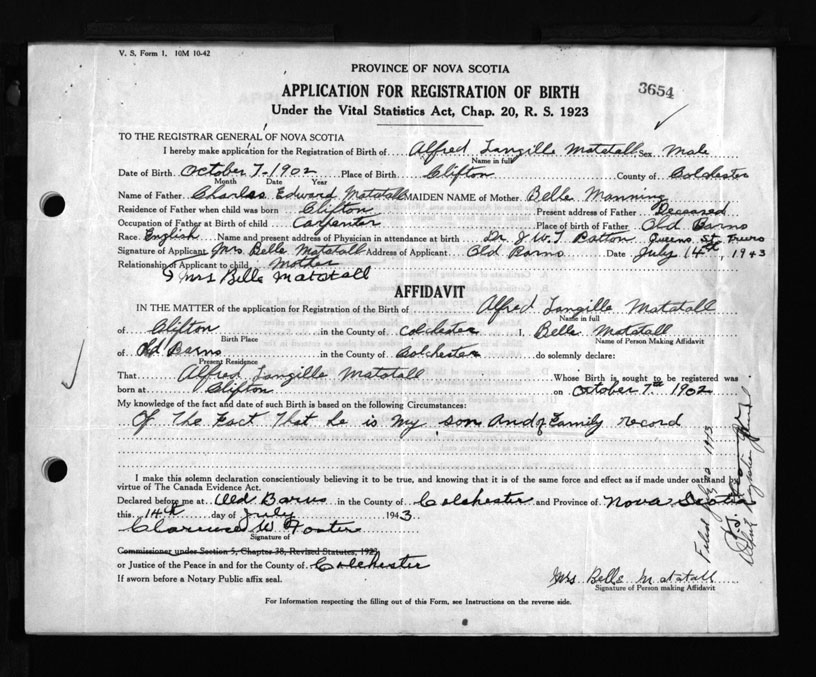 V. S. Form 1. 10M 10-42
PROVINCE OF NOVA SCOTIA
3654
APPLICATION FOR REGISTRATION OF BIRTH
Under the Vital Statistics Act, Chap. 20, R. S. 1923
TO THE REGISTRAR GENERAL OF NOVA SCOTIA
I hereby make application for the Registration of Birth of Alfred Langille Matatall Sex Male
Name in full
Date of Birth October 7-1902 Place of Birth Clifton County of Colchester
Month Date Year
Name of Father Charles Edward Matatall MAIDEN NAME of Mother Belle Manning
Residence of Father when child was born Clifton Present address of Father Deceased
Occupation of Father at Birth of child Carpenter Place of birth of Father Old Barns
Race English Name and present address of Physician in attendance at birth Dr J. W. T Patton Queens St Truro
Signature of Applicant Mrs. Belle Matatall Address of Applicant Old Barns Date July 14th, 1943
Relationship of Applicant to child Mother
Mrs Belle Matatall
AFFIDAVIT
IN THE MATTER of the application for Registration of the Birth of Alfred Langille Matatall
Name in full
of Clifton in the County of Colchester I, Belle Matatall
Birth Place Name of Person Making Affidavit
of Old Barns in the County of Colchester do solemnly declare:
Present Residence
That Alfred Langille Matatall Whose Birth is sought to be registered was
born at Clifton on October 7th 1902
My knowledge of the fact and date of such Birth is based on the following Circumstances:
Of The Fact That he is my son And of Family record
I make this solemn declaration conscientiously believing it to be true, and knowing that it is of the same force and effect as if made under oath and by
virtue of The Canada Evidence Act.
Declared before me at Old Barns in the County of Colchester and Province of Nova Scotia
this 14th day of July 1943
Clarence W. Foster
Signature of
Commissioner under Section 5, Chapter 38, Revised Statutes, 1923
or Justice of the Peace in and for the County of Colchester
If sworn before a Notary Public affix seal.
Mrs Belle Matatall
Signature of Person making Affidavit
For Information respecting the filling out of this Form, see Instructions on the reverse side.
Filed July 20 1943